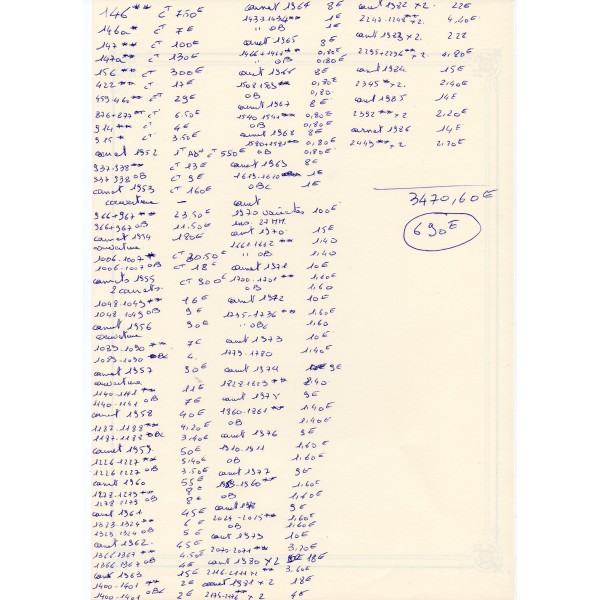 146** CT 750E
146a* CT 7E
147** CT 100E
147a** CT 130E
156** CT 300E
422** CT 17E
459-460** CT 29E
876+877** CT 6.50E
914** CT 4E
915* CT 3.50E
carnet 1952 CT 550E
937-938** CT 13E
937-938 OB CT 9E
carnet 1953 CT 160E
couverture -
966+967** 23,50E
966+967 OB 11.50E
carnet 1954 180E
couverture
1006-1007** CT 30.50E
1006-1007 OB CT 18E
carnets 1955 CT 300E
2 carnets
1048-1049** 16E
1048-1049 OB 9E
carnet 1956 90E
couverture
1089-1090** 7E
1089-1090 OBL 4.
carnet 1957 90E
couverture
1140-1141** 11E
1140-1141 OB 7E
carnet 1958 40E
1187-1188** 4,20E
1187-1188 OBL 3.40E
carnet 1959 50E
1226-1227** 5.40E
1226-1227 OB 3.50E
carnet 1960 55E
1278-1279** 8E
1278-1279 OB 8E
carnet 1961 45E
1323-1324** 6E
1323-1324 OB 5E
carnet 1962 45E
1366-1367** 4.50E
1366-1367 OB 4E
carnet 1963 15E
1400-1401** 2E
1400-1401 OB 2E
carnet 1964 8E
1433-1434** 1E
" OB 0,80E
carnet 1965 8E
1466+1467** 0,80E
" OB 0.80E
carnet 1966 8E
1508-1509** 1E
OB 0,80.
carnet 1967 8E
1540-1541** 0,80E
OB 0,80E
carnet 1968 8E
1580+1581** 0.80E
OB 0.80E
carnet 1969 8E
1619-1620 1E
OBL 1E
carnet
1970 variétés 100E
carnet 1970 15E
1661-1662** 1.40
" OB 1.40
carnet 1971 10E
1700-1701** 1.60E
OB 1.60
carnet 1972 10E
1735-1736** 1.60E
" OBL 1.60
carnet 1973 10E
1779-1780 1.40E
carnet 1974 9E
1828-1829** 2.40
carnet 1975 9E
1860-1861** 1.40E
OB 1.40E
carnet 1976 9E
1910-1911 1.60E
OB 1.60E
carnet 1977 9E
1959-1960** 1.60E
OB 1.60E
carnet 9E
2024-2025** 1.60E
OB 1.60E
carnet 1979 10E
2070-2071** 3.20E
carnet 1980 x2 18E
2116-2117** 3.60E
carnet 1981 x2 18E
2175-2176** x2 4E
carnet 1982 x2. 22E
2247-2248** x2. 4,40E
carnet 1983 x2. 22E
2295+2296** x2. 4.80E
carnet 1984 15E
2345* x2. 2.40E
carnet 1985 14E
2392** x2 2.20E
carnet 1986 14E
2449** x2 2.20E
3470,60E
690E